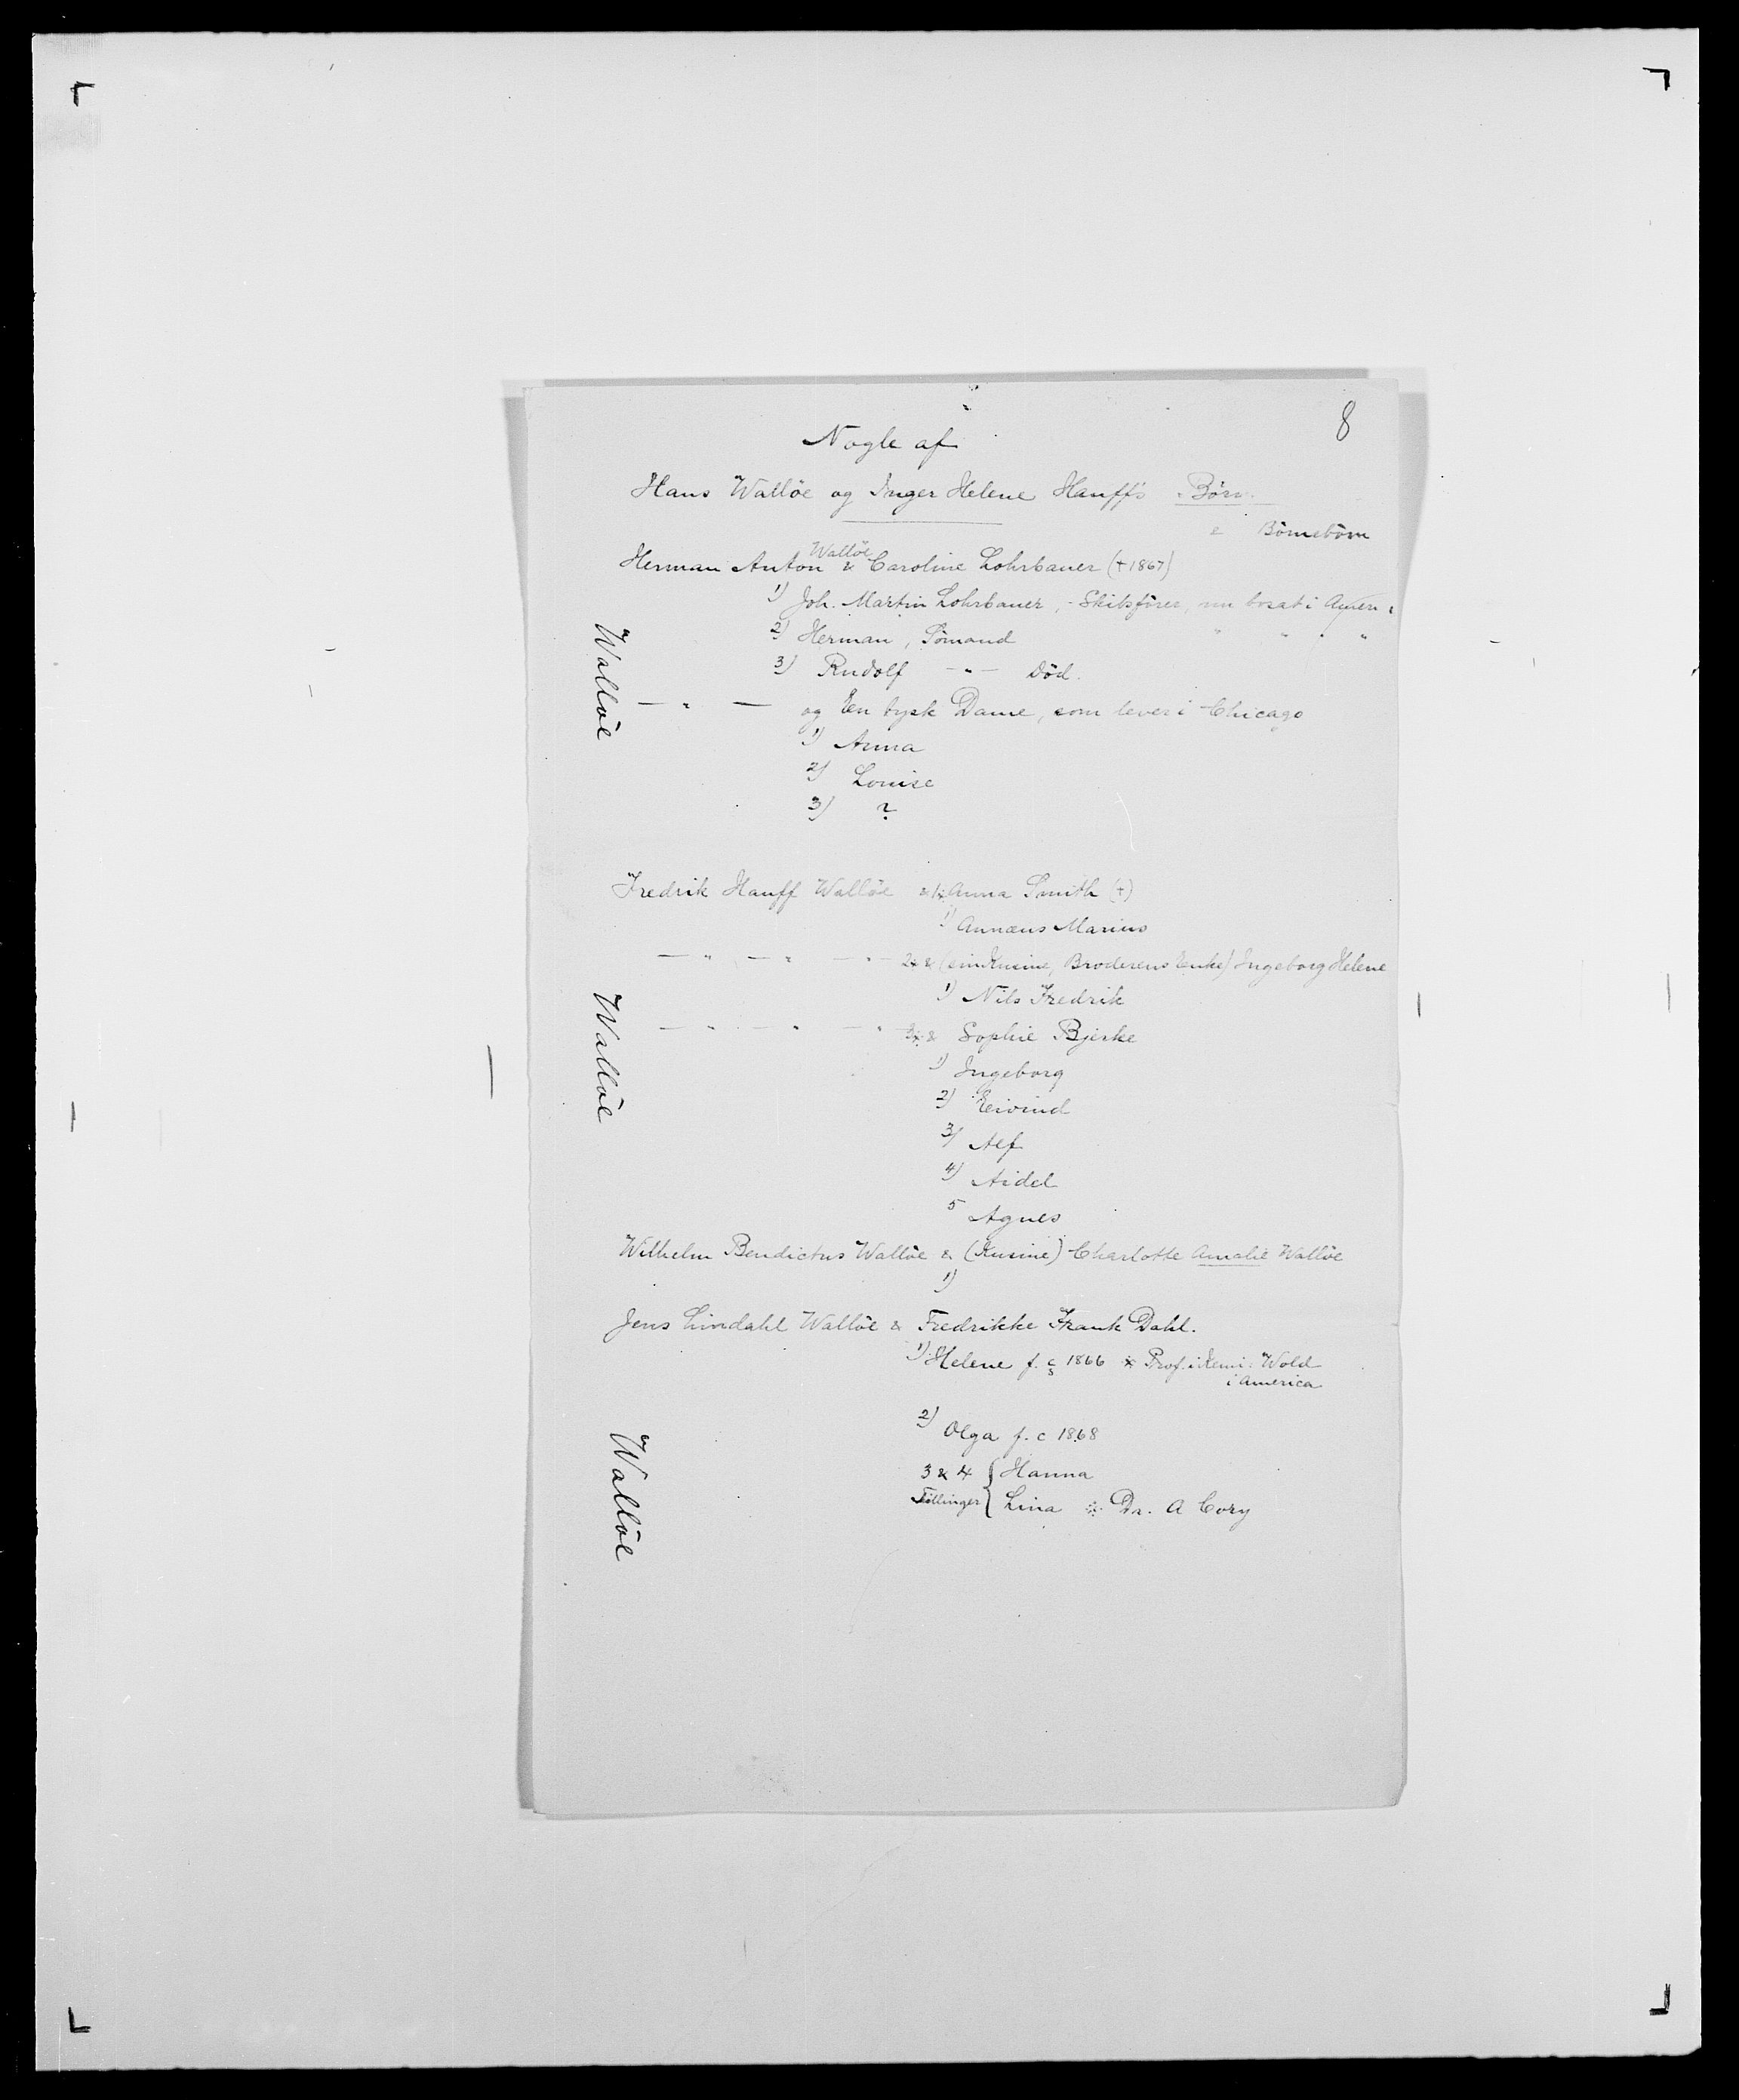 8
Nogle af
Hans Wallöe og Inger Helene Hauff's Børn
& Börnebörn
Wallöe
Herman Anton & Caroline Lohrbauer (†1867)
1) Joh. Martin Lohrbauer, - Skibsförer, nu bosat i Ameri
2) Herman, Sömand " " " "
3) Rudolf —"— Död.
— " — og En tysk Dame, som lever i Chicago
1) Anna
2) Louise
3) ?
Wallöe
Fredrik Hauff Wallöe & Anna Smith (†)
1) Annæus Marius
— " — " — " — 2 & (sin Kusine, Broderens Enke) Ingeborg Helene
1) Nils Fredrik
— " — " — " — 3 & Sophie Bjerke
1) Ingeborg
2) Eivind
3) Alf
4) Aidel
5 Agnes
Wallöe
Wilhelm Bendictus Wallöe & (Kusine) Charlotte Amalie Wallöe
1)
Jens Lindahl Wallöe & Fredrikke Frank Dahl.
1) Helene f. c 1866 Prof. i Kemi: Wold
i America
2) Olga f. c 1868
3 & 4 { Hanna
Tvillinger } Lina Dr. A Cory
Wallöe